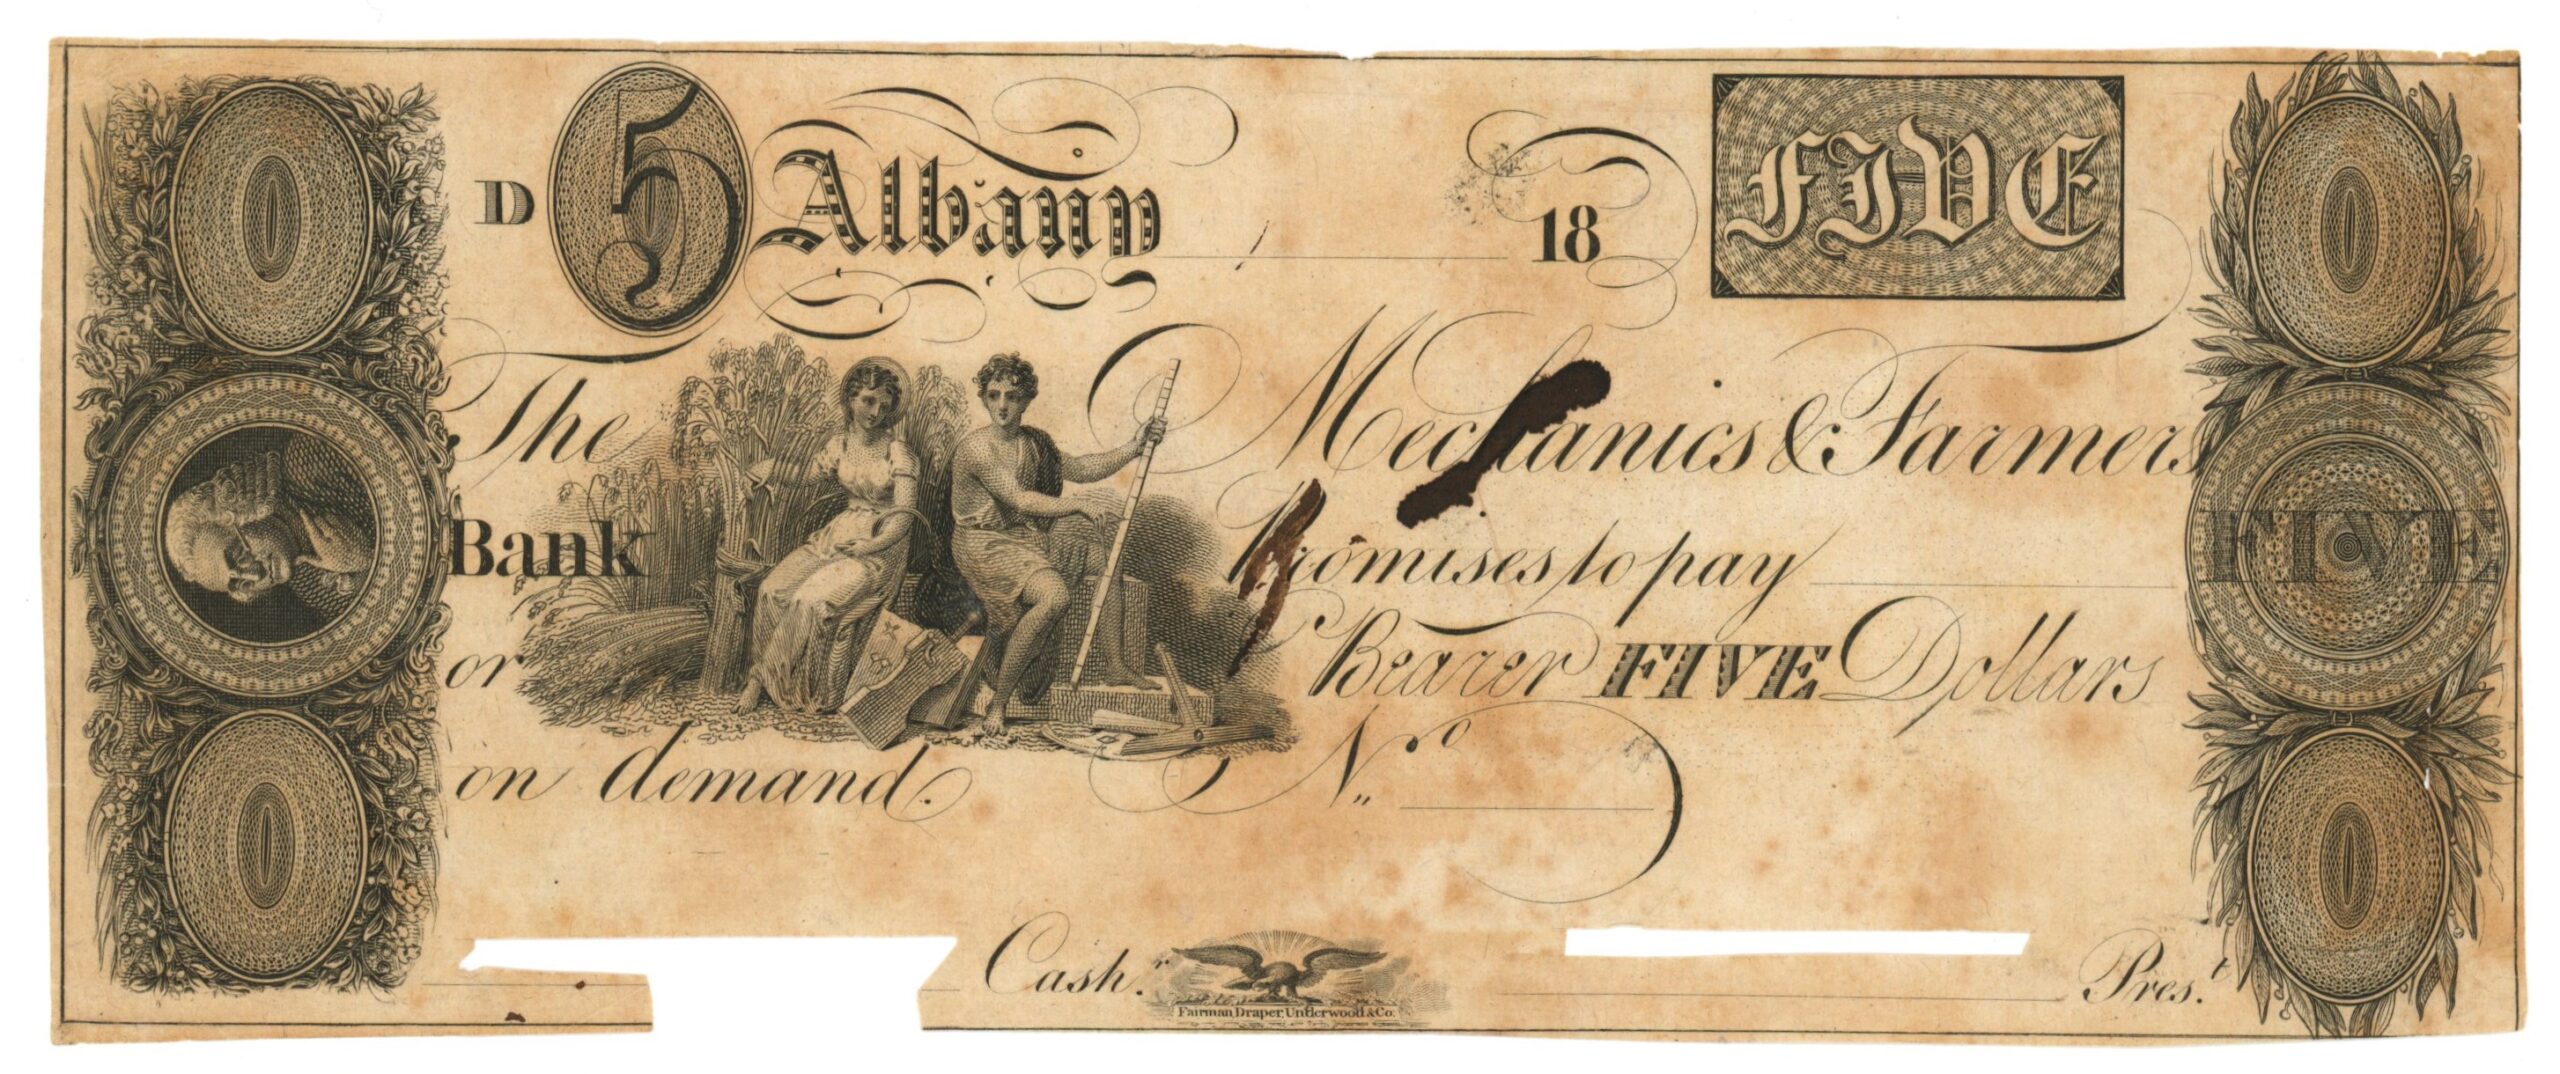 D 5 Albany 18 FIVE
The Mechanics & Farmers
Bank Promises to pay FIVE
or Bearer FIVE Dollars
on demand. No.
Cash.r Pres.t
Fairman, Draper, Underwood & Co.